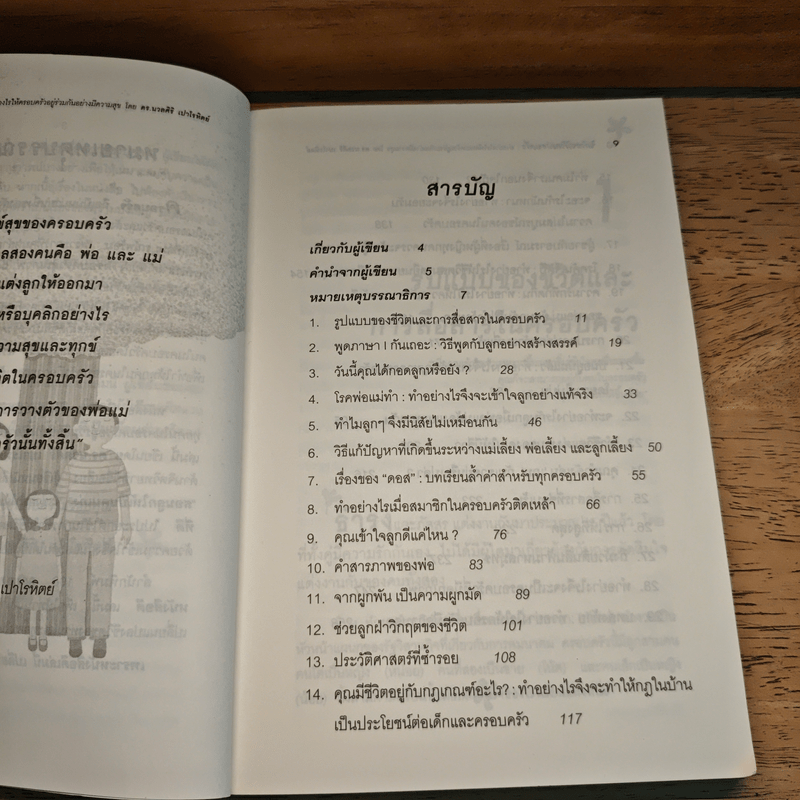 งไรให้ครอบครัวอยู่ร่วมกันอย่างมีความสุข โดย ดร.นวลศิริ เปาโรหิตย์
ข์สุขของครอบครัว
ลสองคนคือ พ่อ และ แม่
แต่งลูกให้ออกมา
หรือบุคลิกอย่างไร
วามสุขและทุกข์
ิตในครอบครัว
การวางตัวของพ่อแม่
รัวนั้นทั้งสิ้น”
เปาโรหิตย์
9
สารบัญ
เกี่ยวกับผู้เขียน 4
คำนำจากผู้เขียน 5
หมายเหตุบรรณาธิการ 7
1. รูปแบบของชีวิตและการสื่อสารในครอบครัว 11
2. พูดภาษา I กันเถอะ : วิธีพูดกับลูกอย่างสร้างสรรค์ 19
3. วันนี้คุณได้กอดลูกหรือยัง ? 28
4. โรคพ่อแม่ทำ : ทำอย่างไรจึงจะเข้าใจลูกอย่างแท้จริง 33
5. ทำไมลูกๆ จึงมีนิสัยไม่เหมือนกัน 46
6. วิธีแก้ปัญหาที่เกิดขึ้นระหว่างแม่เลี้ยง พ่อเลี้ยง และลูกเลี้ยง 50
7. เรื่องของ “ดอส” : บทเรียนล้ำค่าสำหรับทุกครอบครัว 55
8. ทำอย่างไรเมื่อสมาชิกในครอบครัวติดเหล้า 66
9. คุณเข้าใจลูกดีแค่ไหน ? 76
10. คำสารภาพของพ่อ 83
11. จากผูกพัน เป็นความผูกมัด 89
12. ช่วยลูกฝ่าวิกฤตของชีวิต 101
13. ประวัติศาสตร์ที่ซ้ำรอย 108
14. คุณมีชีวิตอยู่กับกฎเกณฑ์อะไร? : ทำอย่างไรจึงจะทำให้กฎในบ้าน
เป็นประโยชน์ต่อเด็กและครอบครัว 117